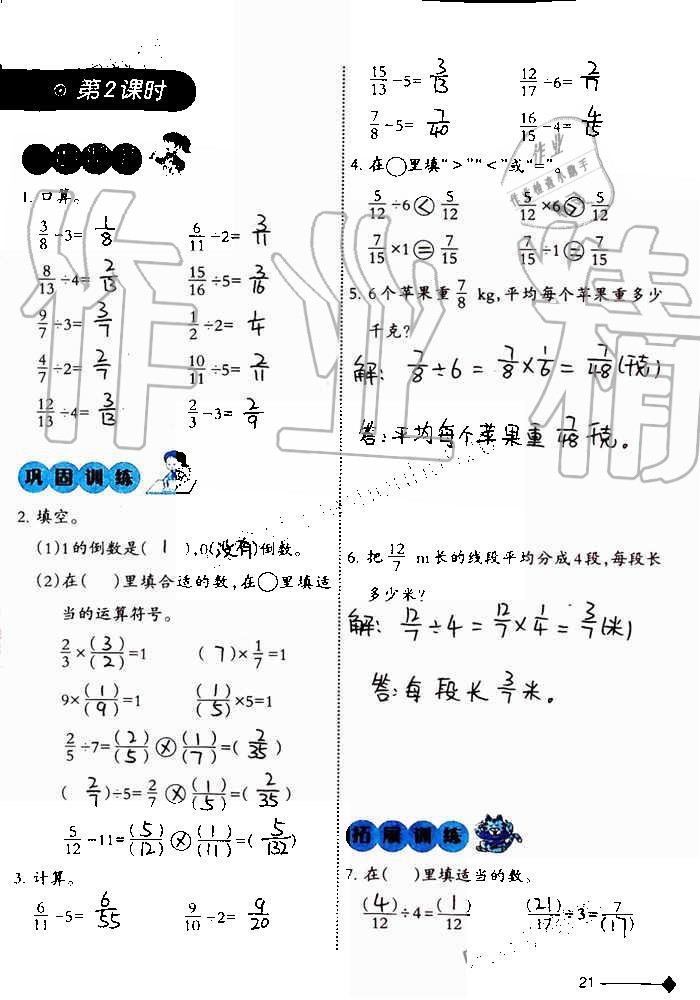 第2课时
1. 口算。
3/8 -3= 1/8    6/11 ÷2= 3/11
8/13 ÷4= 2/13    15/16 ÷5= 3/16
9/7 ÷3= 3/7    1/2 ÷2= 1/4
4/7 ÷2= 2/7    10/11 ÷5= 2/11
12/13 ÷4= 3/13    2/3 -3= 2/9
巩固训练
2. 填空。
(1)1的倒数是( 1 ),0(没有)倒数。
(2)在( )里填合适的数,在○里填适
当的运算符号。
2/3 ×(3)/(2)=1    (7)×1/7=1
9×(1)/(9)=1    (1)/(5)×5=1
2/5 ÷7=(2)/(5)⊗(1)/(7)=(2/35)
(2/7)÷5=2/7⊗(1)/(5)=(2/35)
5/12 -11=(5)/(12)⊗(1)/(11)=(5/132)
3. 计算。
6/11 -5= 6/55    9/10 ÷2= 9/20
15/13 -5= 3/13    12/17 ÷6= 2/17
7/8 -5= 7/40    16/15 -4= 4/15
4. 在○里填“>”“<”或“=”。
5/12 ÷6 < 5/12    5/12 ×6 > 5/12
7/15 ×1 = 7/15    7/15 ÷1 = 7/15
5. 6个苹果重7/8 kg,平均每个苹果重多少
千克?
解: 7/8 ÷6 = 7/8 × 1/6 = 7/48 (千克)
答:平均每个苹果重7/48千克。
6. 把12/7 m长的线段平均分成4段,每段长
多少米?
解: 12/7 ÷4 = 12/7 × 1/4 = 3/7 (米)
答:每段长3/7米。
拓展训练
7. 在( )里填适当的数。
(4)/12 ÷4=(1)/12    (21)/17 ÷3=7/(17)
21
作业精
作业
作业检查小助手